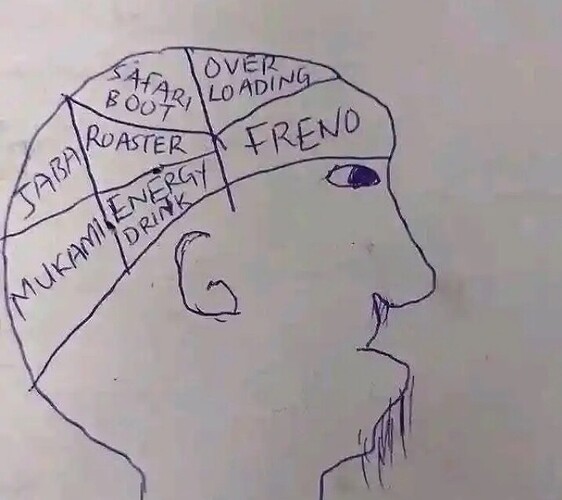 SAFARI
BOOT
OVER
LOADING
JABA
ROASTER
FRENO
MUKAMI
ENERGY
DRINK